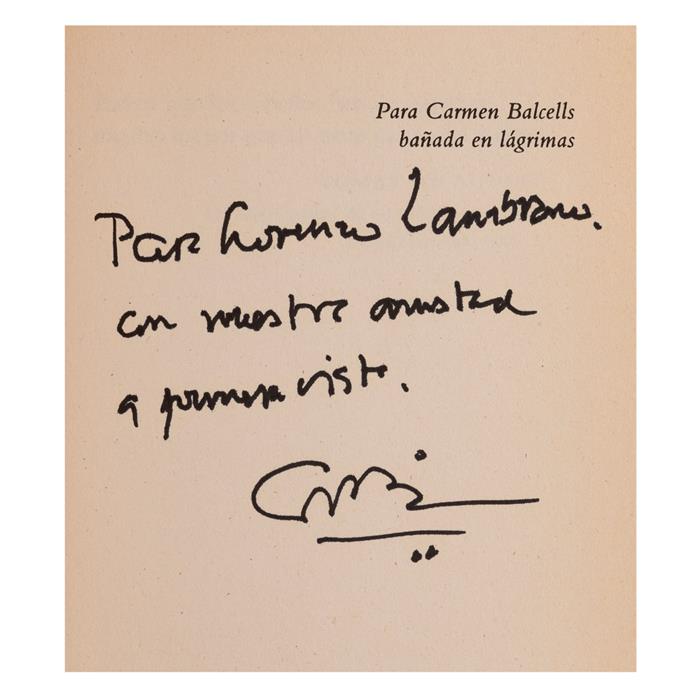 Para Carmen Balcells
bañada en lágrimas
Para Lorenzo Zambrano.
con nuestra amistad
a primera vista.